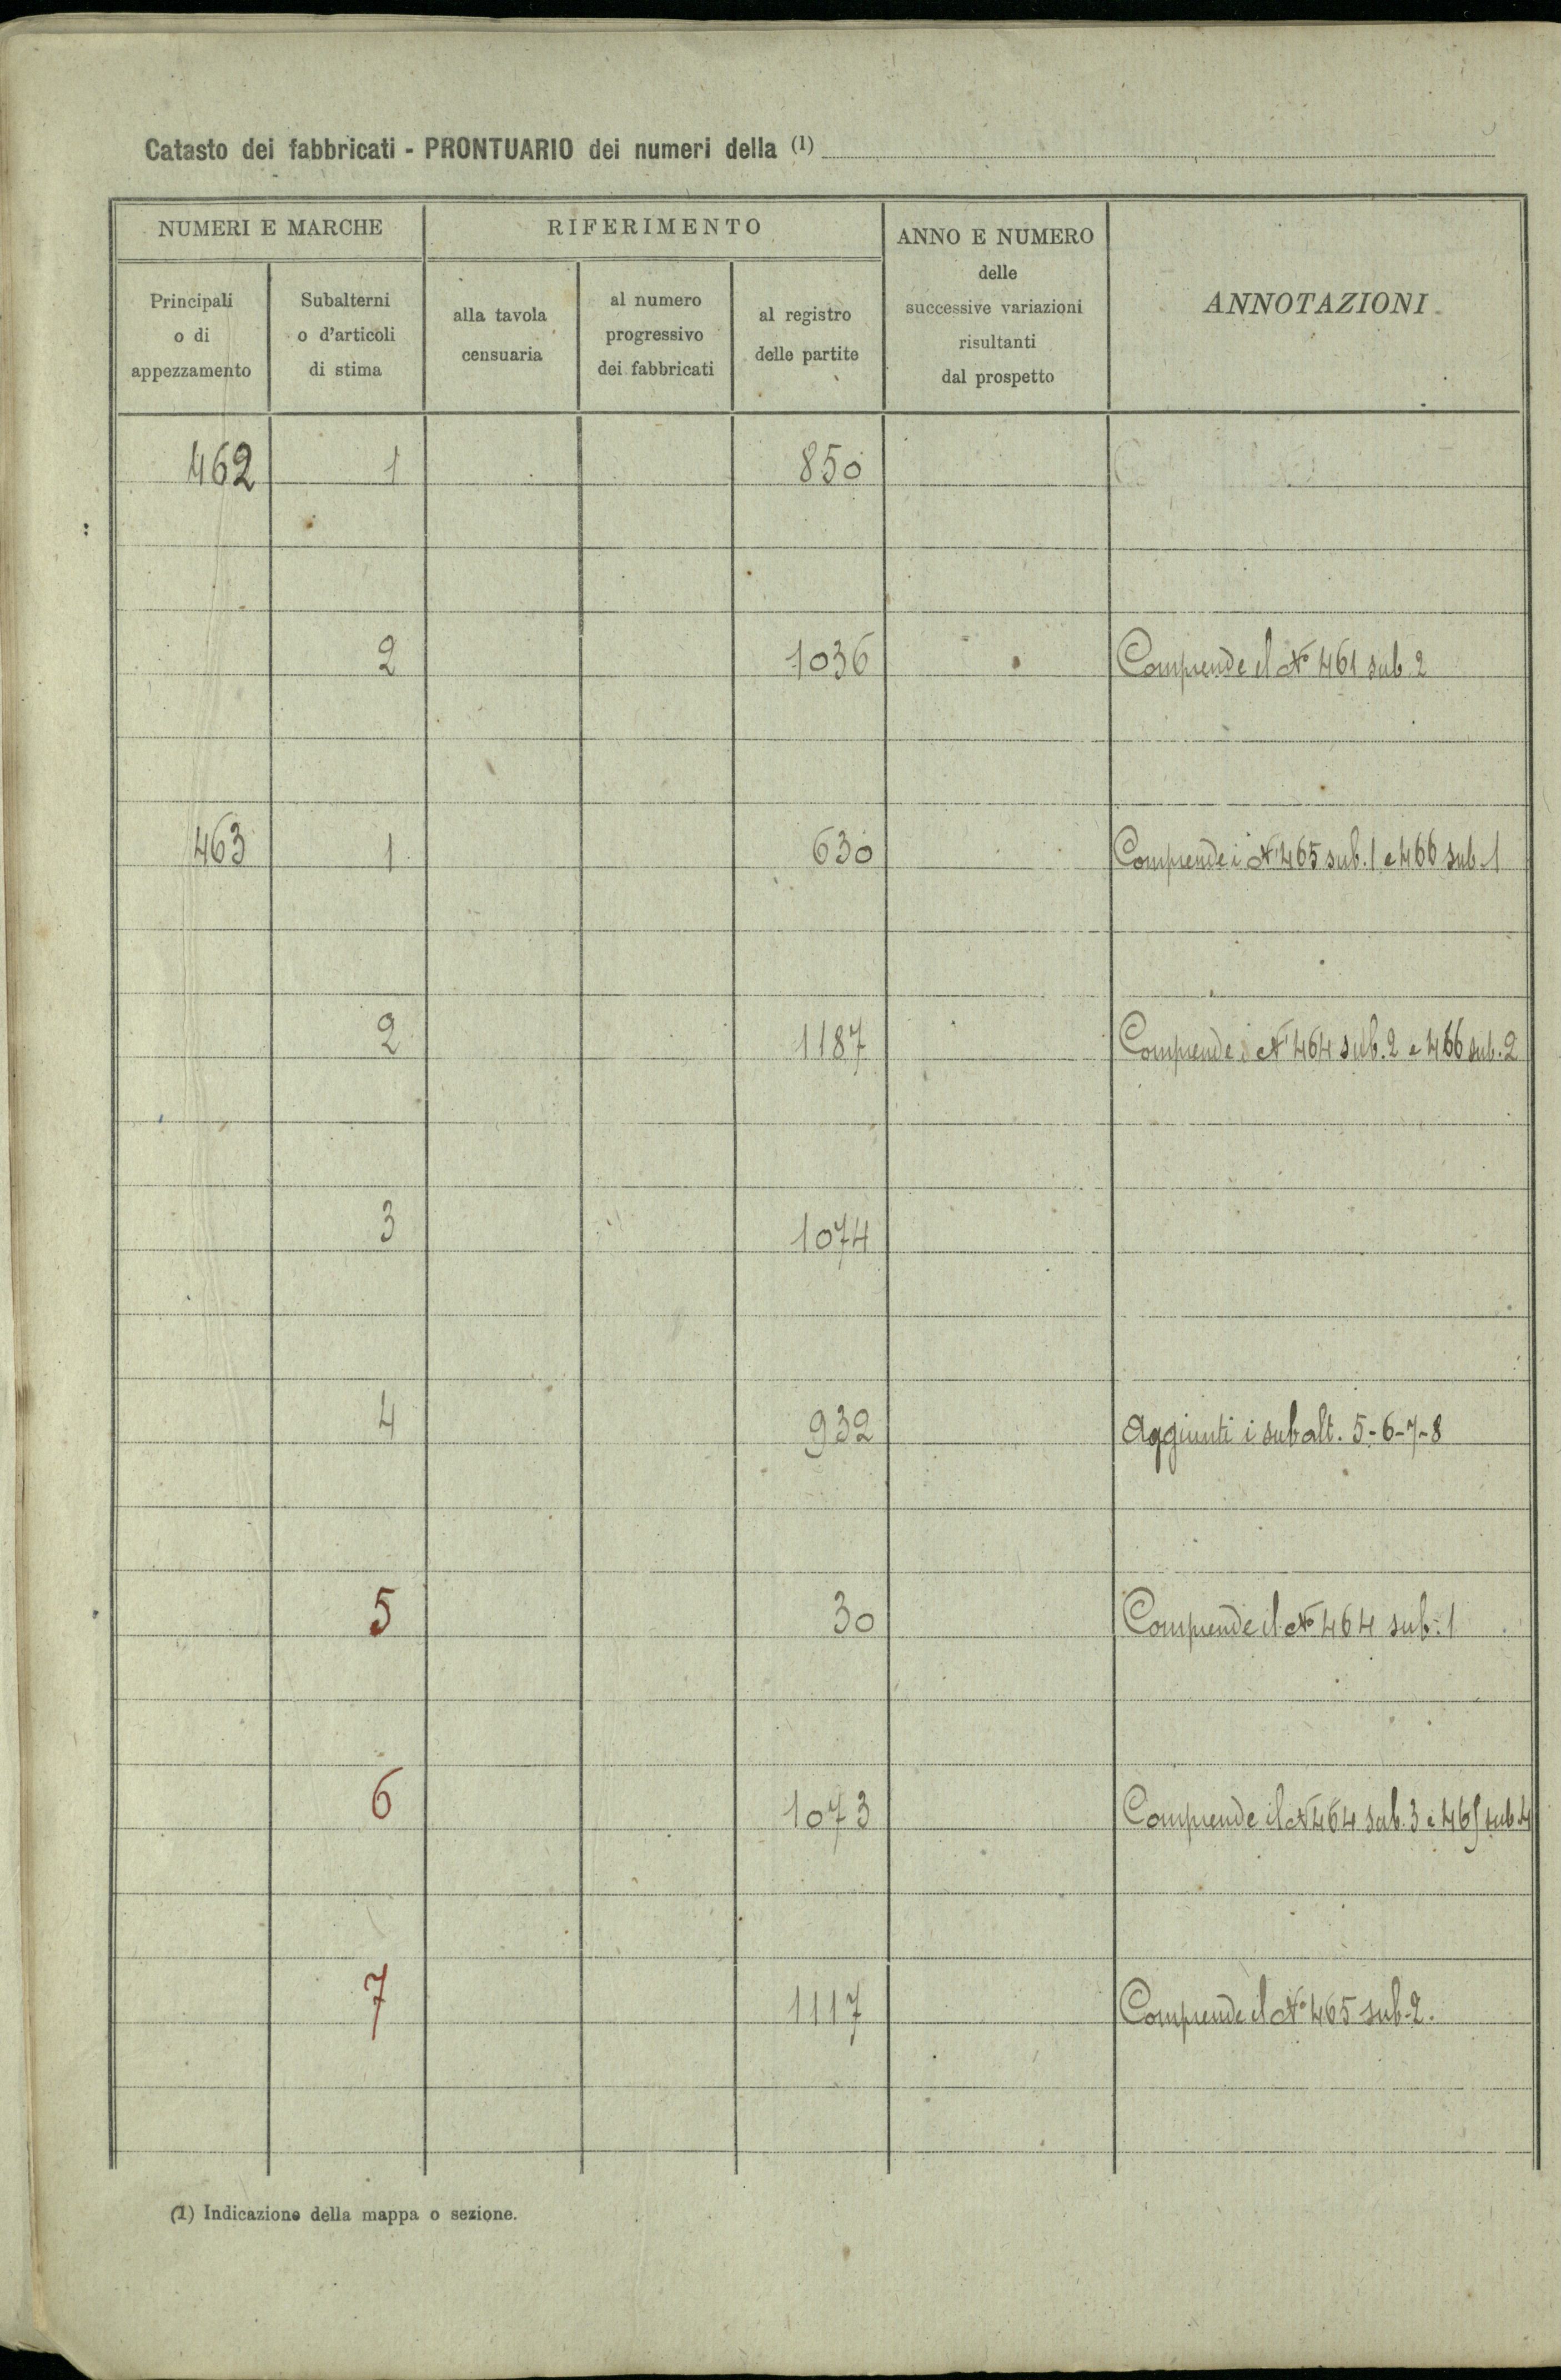 Catasto dei fabbricati - PRONTUARIO dei numeri della (1)
NUMERI E MARCHE
RIFERIMENTO
ANNO E NUMERO
delle
successive variazioni
risultanti
dal prospetto
ANNOTAZIONI
Principali
o di
appezzamento
Subalterni
o d'articoli
di stima
alla tavola
censuaria
al numero
progressivo
dei fabbricati
al registro
delle partite
462 1 850
2 1036 Comprende il No 461 sub 2
463 1 630 Comprende i Ni 465 sub. 1 e 466 sub. 1
2 1187 Comprende i Ni 464 sub. 2 e 466 sub. 2
3 1074
4 932 Aggiunti i subalt. 5-6-7-8
5 30 Comprende il No 464 sub. 1
6 1073 Comprende il N 464 sub. 3 e 465 sub. 4
7 1117 Comprende il No 465 sub. 2.
(1) Indicazione della mappa o sezione.